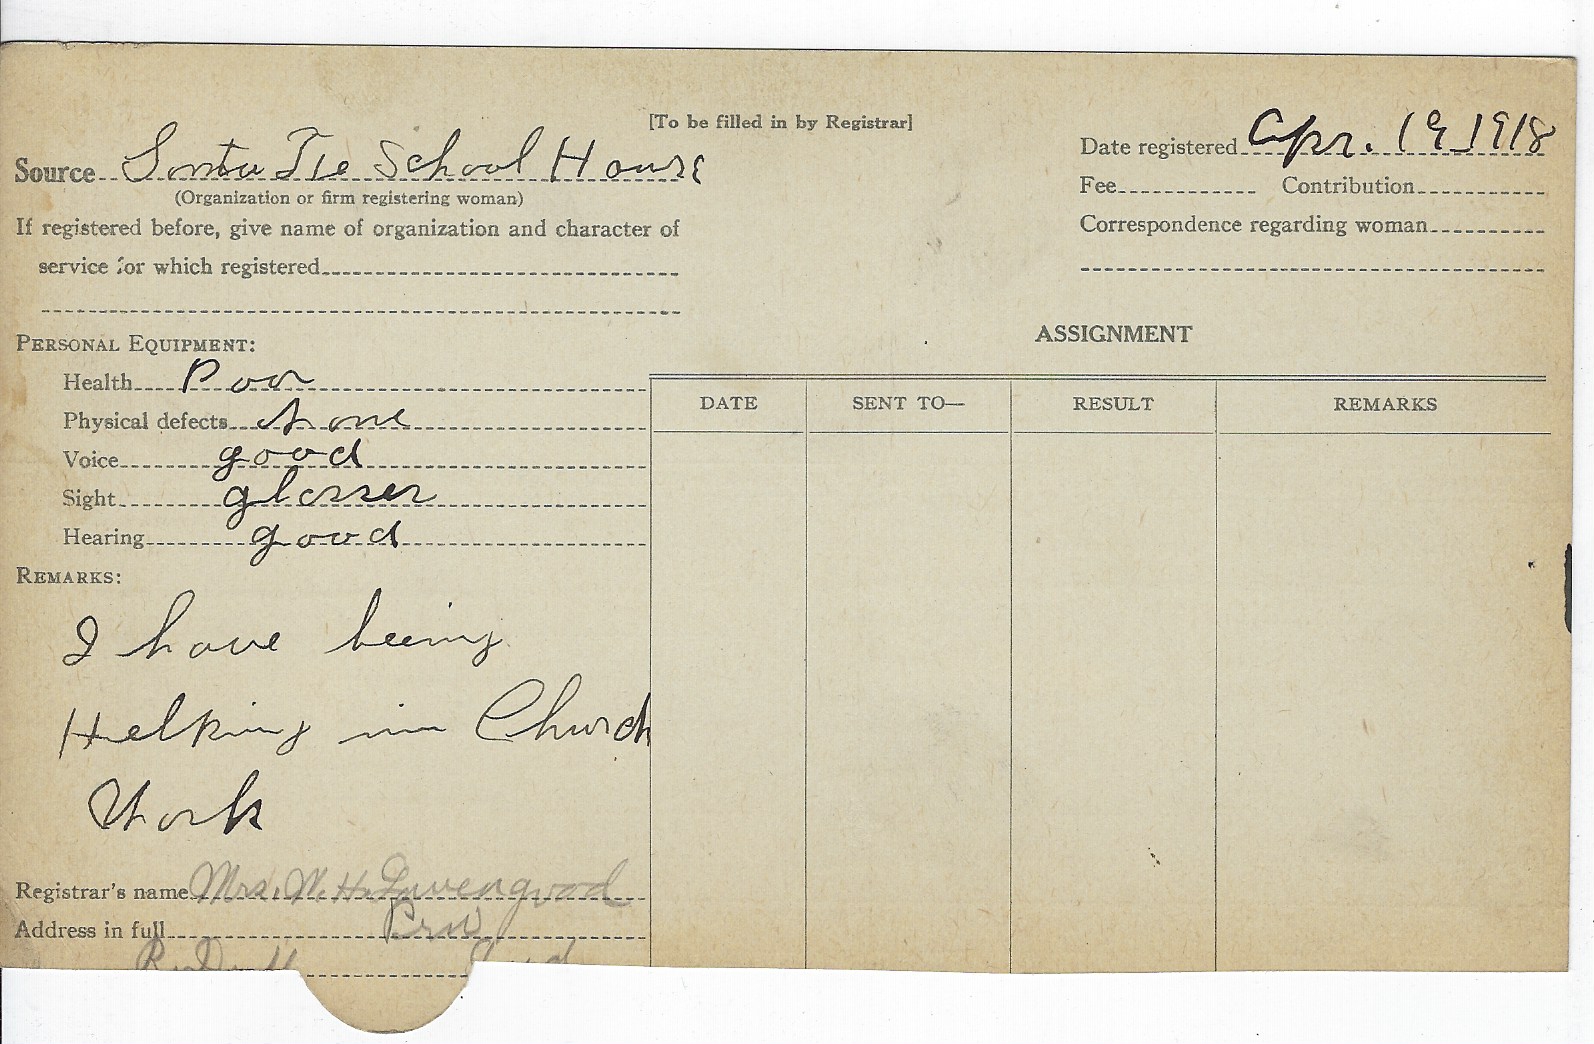 [To be filled in by Registrar]
Source Santa Fe School House
(Organization or firm registering woman)
If registered before, give name of organization and character of
service for which registered
Date registered Apr. 19 1918
Fee Contribution
Correspondence regarding woman
PERSONAL EQUIPMENT:
Health Poor
Physical defects None
Voice good
Sight glasses
Hearing good
REMARKS:
I have being
Helking in Church
Work
Registrar's name Mrs. W. H. Livengood
Address in full Peru
ASSIGNMENT
DATE SENT TO— RESULT REMARKS